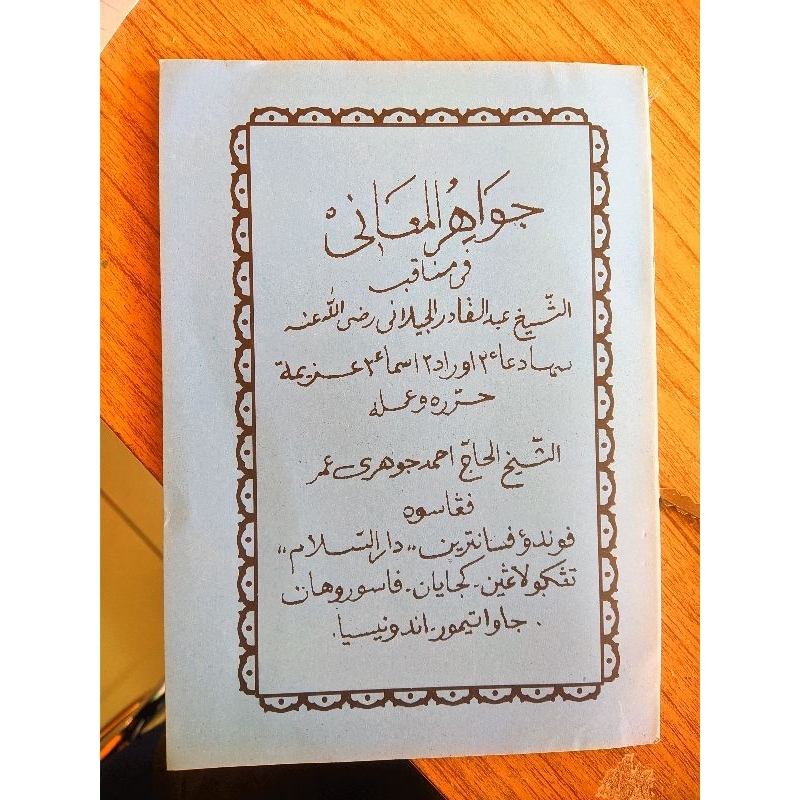 جَوَاهِرُ المَعَانِيْ
فى مناقب
الشّيخ عبد القادر الجيلانى رضى اللّٰه عنه
سهادعاء٢ اوراد٢ اسماء٢ عزيمة
حرّره وعمله
الشّيخ الحاجّ احمد جوهرى عمر
ڤڠاسوه
ڤوندؤ ڤسانترين ,,دار السّلام,,
تڠڬولاڠين - كجايان - ڤاسوروهان
جاوا تيمور - اندونيسيا.